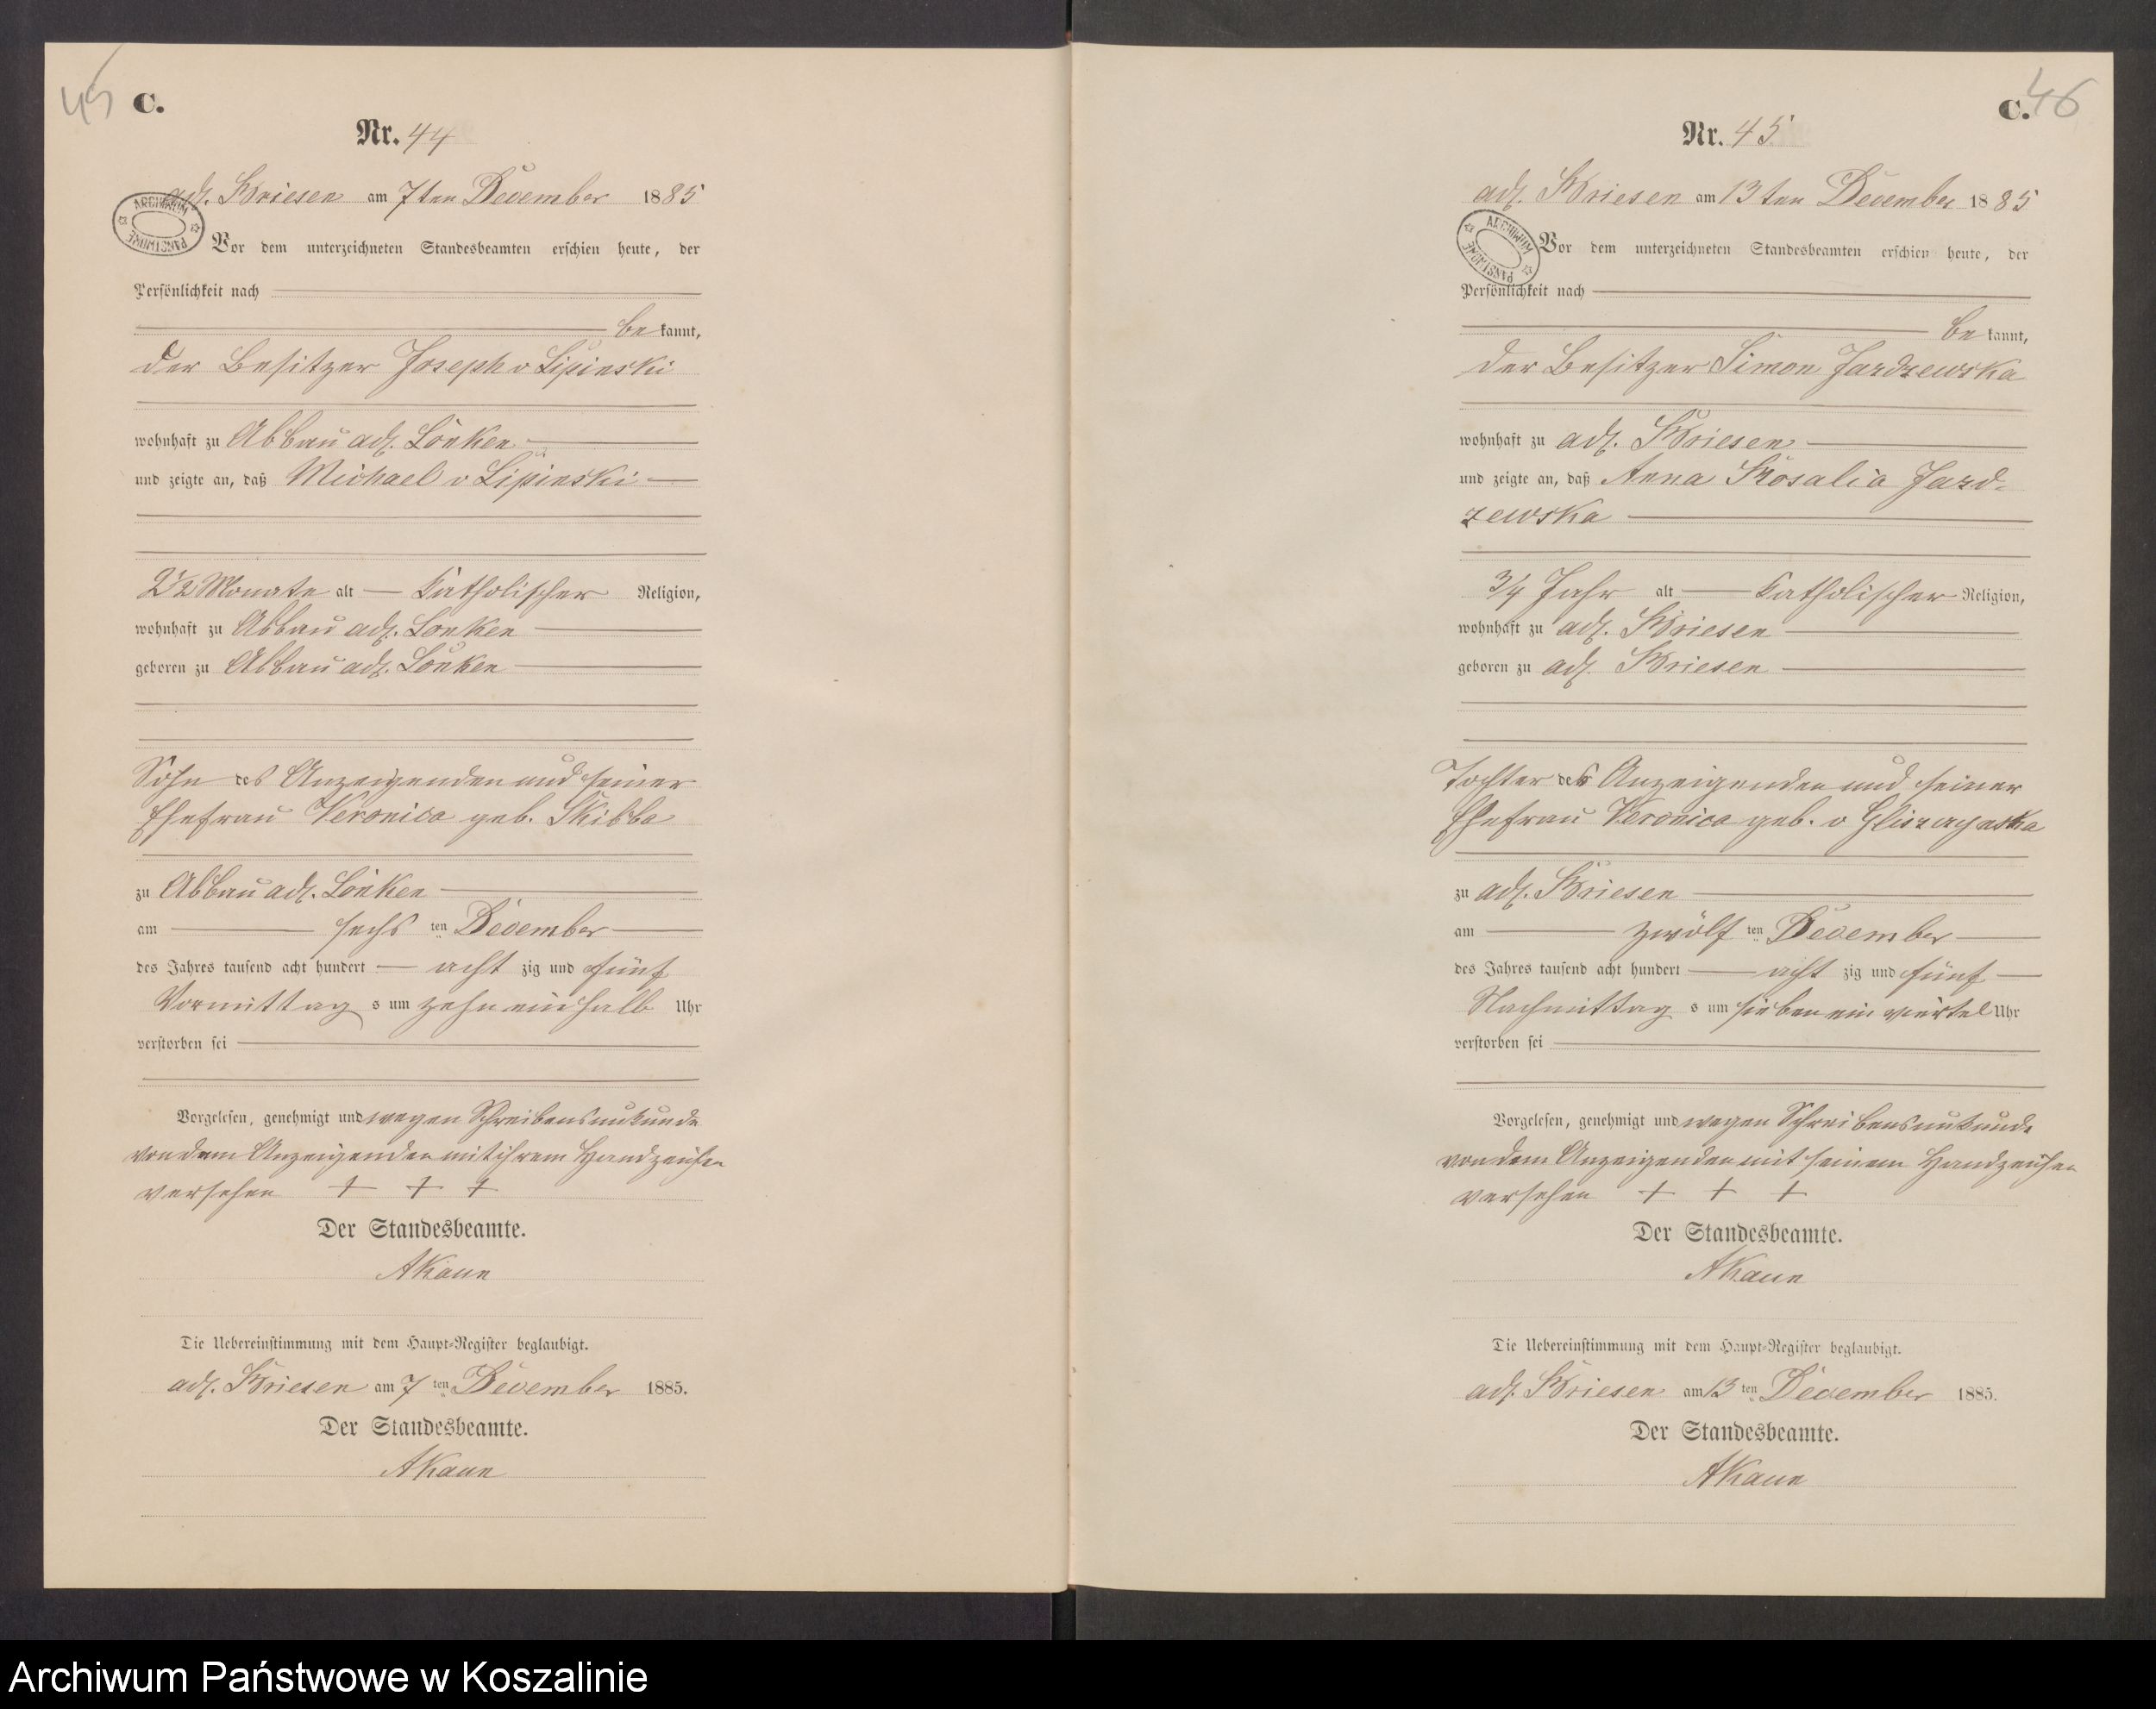 45
C.
Nr. 44
adl. Briesen am 7ten December 1885
ARCHIWUM PAŃSTWOWE
Vor dem unterzeichneten Standesbeamten erschien heute, der
Persönlichkeit nach
be kannt,
der Besitzer Joseph v Lipinski
wohnhaft zu Abbau adl. Lonken
und zeigte an, daß Michael v Lipinski
2 1/2 Monate alt Katholischer Religion,
wohnhaft zu Abbau adl. Lonken
geboren zu Abbau adl. Lonken
Sohn des Anzeigenden und seiner
Ehefrau Veronica geb. Skibba
zu Abbau adl. Lonken
am sechs ten December
des Jahres tausend acht hundert acht zig und fünf
Vormittag s um zehn ein halb Uhr
verstorben sei
Vorgelesen, genehmigt und wegen Schreibensunkunde
von dem Anzeigenden mit ihrem Handzeichen
versehen + + +
Der Standesbeamte.
AKaun
Die Uebereinstimmung mit dem Haupt-Register beglaubigt.
adl. Briesen am 7 ten December 1885.
Der Standesbeamte.
AKaun
C. 46
Nr. 45
adl. Briesen am 13ten December 1885
ARCHIWUM PAŃSTWOWE
Vor dem unterzeichneten Standesbeamten erschien heute, der
Persönlichkeit nach
be kannt,
der Besitzer Simon Jardzewska
wohnhaft zu adl. Briesen
und zeigte an, daß Anna Rosalia Jard-
zewska
3/4 Jahr alt Katholischer Religion,
wohnhaft zu adl. Briesen
geboren zu adl. Briesen
Tochter des Anzeigenden und seiner
Ehefrau Veronica geb. v
zu adl. Briesen
am zwölf ten December
des Jahres tausend acht hundert acht zig und fünf
Nachmittag s um sieben ein viertel Uhr
verstorben sei
Vorgelesen, genehmigt und wegen Schreibensunkunde
von dem Anzeigenden mit seinem Handzeichen
versehen + + +
Der Standesbeamte.
AKaun
Die Uebereinstimmung mit dem Haupt-Register beglaubigt.
adl. Briesen am 13 ten December 1885.
Der Standesbeamte.
AKaun
Archiwum Państwowe w Koszalinie